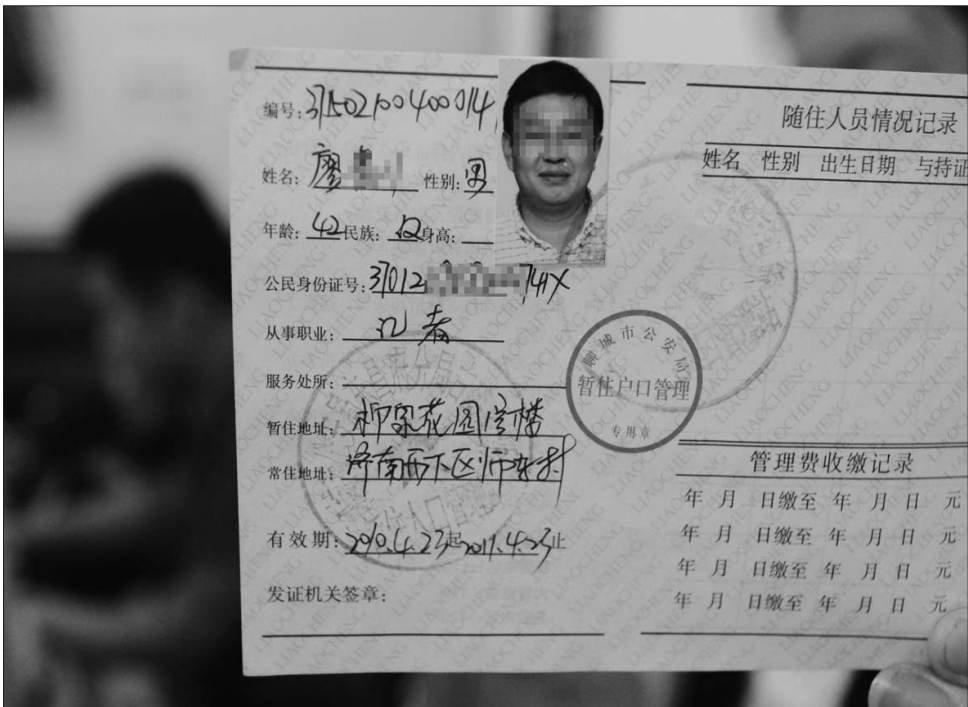 编号:371502100400014
姓名: 廖 性别: 男
年龄: 42 民族: 汉 身高:
公民身份证号: 37012 741X
从事职业: 记者
服务处所:
暂住地址: 柳泉花园 楼
常住地址: 济南历下区师东村
有效期: 2010.4.23起2011.4.23止
发证机关签章:
聊城市公安局
暂住户口管理
专用章
随住人员情况记录
姓名 性别 出生日期 与持证
管理费收缴记录
年 月 日缴至 年 月 日 元
年 月 日缴至 年 月 日 元
年 月 日缴至 年 月 日 元
年 月 日缴至 年 月 日 元
LIAOCHENG